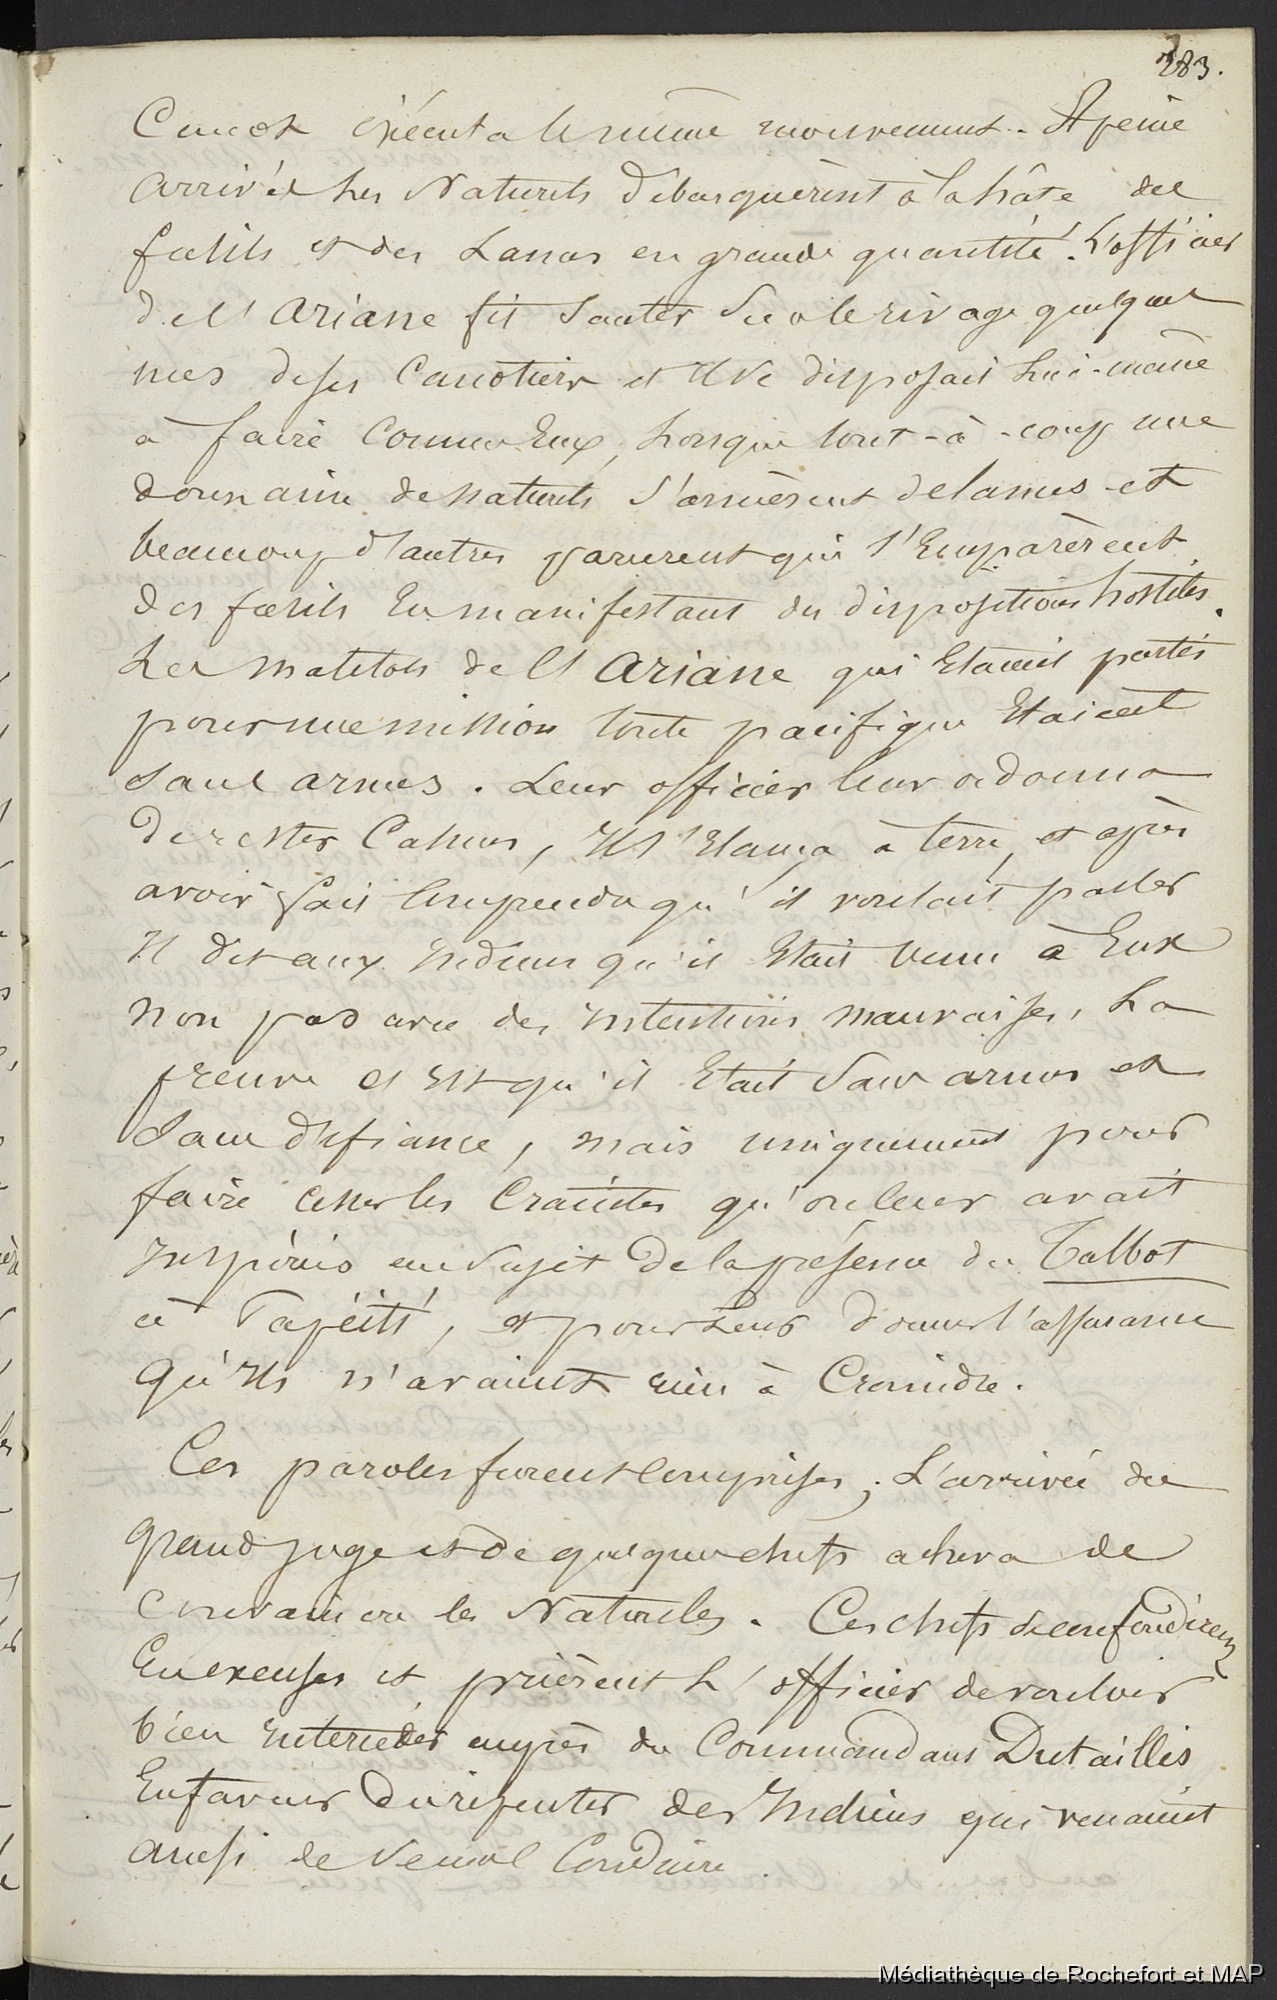 283.
Canot éxécuta le même mouvement. A peine
arrivés Les Naturels débarquèrent à la hâte des
fusils et des Lances en grande quantité. L'officier
de l'Ariane fit Sauter Sur le rivage quelques
unes de ses Canotiers et Il se disposait Lui-même
à faire Comme Eux, Lorsque tout-à-coup une
douzaine de naturels s'armèrent de lances et
beaucoup d'autres parurent qui s'Emparèrent
des fusils En manifestant des dispositions hostiles.
Les matelots de l'Ariane qui Etaient partis
pour une mission toute pacifique Etaient
Sans armes. Leur officier leur ordonna
de rester Calmes, Il s'Elança à terre, et après
avoir fait Comprendre qu'il voulait parler
Il dit aux Indiens qu'il Etait venu à Eux
non pas avec des intentions mauvaises, La
preuve C'est qu'il Etait Sans armes et
Sans défiance, mais uniquement pour
faire cesser les Craintes qu'on leur avait
Inspirées au Sujet de la présence du Talbot
à Papéiti, et pour Leur donner l'assurance
qu'Ils n'avaient rien à Craindre.
Ces paroles furent Comprises; L'arrivée du
grand juge et de quelques chefs acheva de
Convaincre les Naturels. Ces chefs se confondirent
En excuses et prièrent L'officier de vouloir
bien Intercéder auprès du Commandant Dutaillis
En faveur du repentir des Indiens qui venaient
ainsi de se mal Conduire.
Médiathèque de Rochefort et MAP